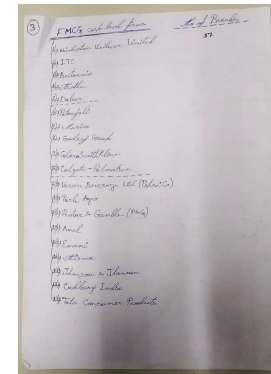 3
FMCG level firms
No of Brands
57
Hindustan Unilever Limited
ITC
Britannia
Nestle
Dabur
Patanjali
Marico
Godrej
GlaxoSmithKline
Colgate - Palmolive
Varun Beverage Ltd (PepsiCo)
Parle Agro
Procter & Gamble (P&G)
Amul
Emami
Johnson & Johnson
Cadbury India
Tata Consumer Products